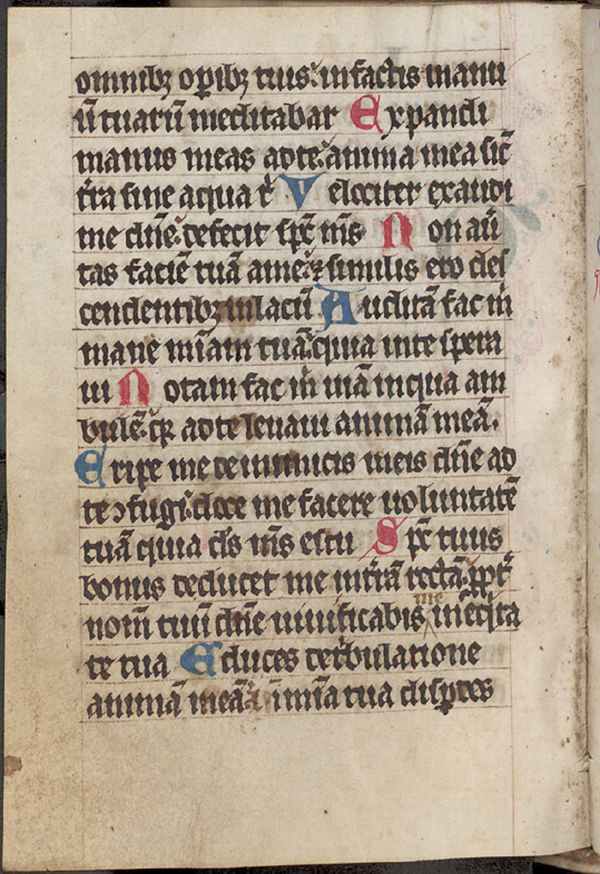 omnibꝫ oꝑibꝫ tuis: in factis manu
ū tuarū meditabar Expandi
manus meas ad te: anima mea sic̄
t̄ra sine aqua t̄ Velociter exaudi
me dn̄e: defecit sp̄c m̄s Non au̅
tas faciē tuā a me: ⁊ similis ero des
cendentibꝫ in lacū Auditā fac m̄
mane m̄iam tuā: quia in te spera
ui Notam fac m̄ uiā in qua am
bulē: qꝛ ad te leuaui animā meā.
Eripe me de inimicis meis dn̄e ad
te ↄfugi: doce me facere uoluntatē
tuā quia ds̄ m̄s es tu Sp̄c tuus
bonus deducet me in t̄rā rectā: ꝓpt̄
nom̄ tuū dn̄e uiuificabis me in eq̄ta
te tua Educes de t̄bulatione
animā meā: ⁊ in m̄ia tua disꝑdes